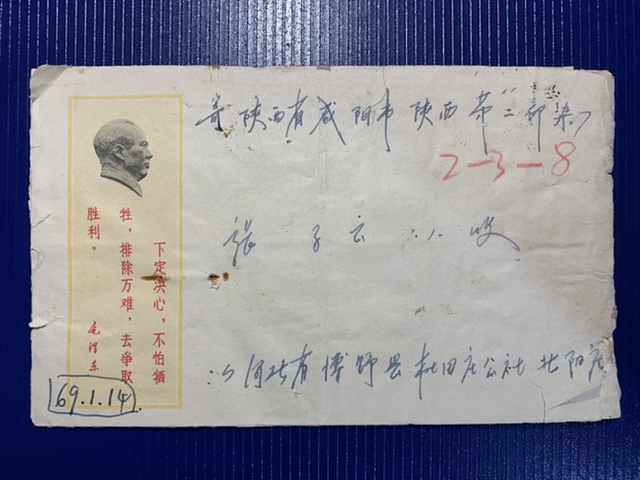 寄陕西省咸阳市陕西第二印染厂
2-3-8
張子云 收
河北省博野县杜田庄公社北阳庄
下定决心，不怕牺
牲，排除万难，去争取
胜利。
毛泽东
69.1.14